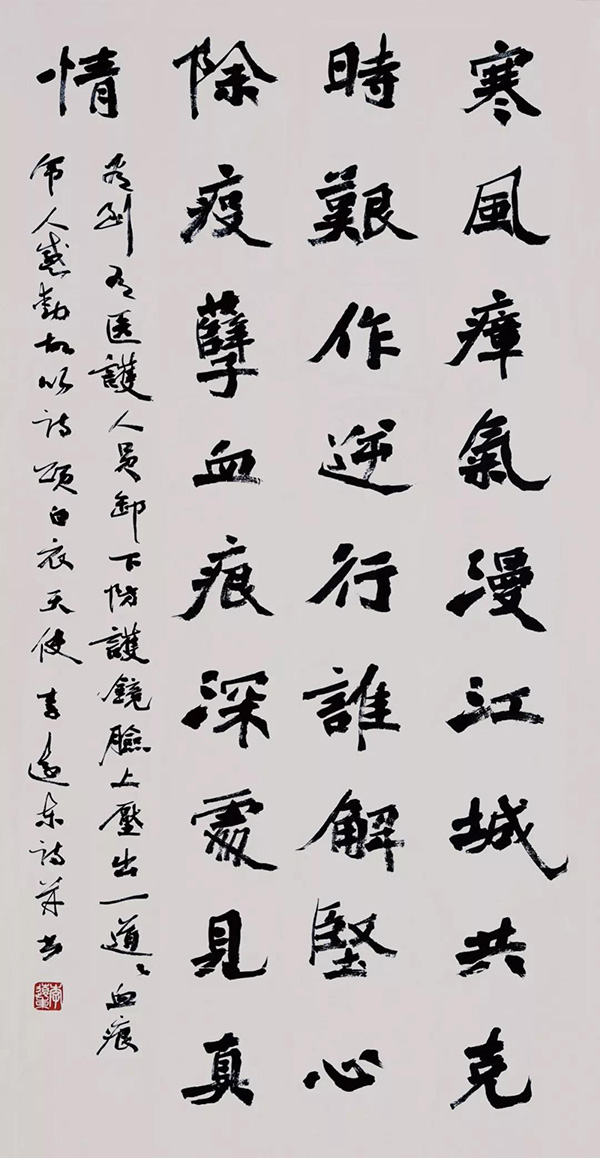 寒風瘴氣漫江城共克
時艱作逆行誰解堅心
除疫孽血痕深處見真
情
看到有医護人员卸下防護鏡臉上壓出一道々血痕
令人感動故以诗颂白衣天使 李远东诗并书